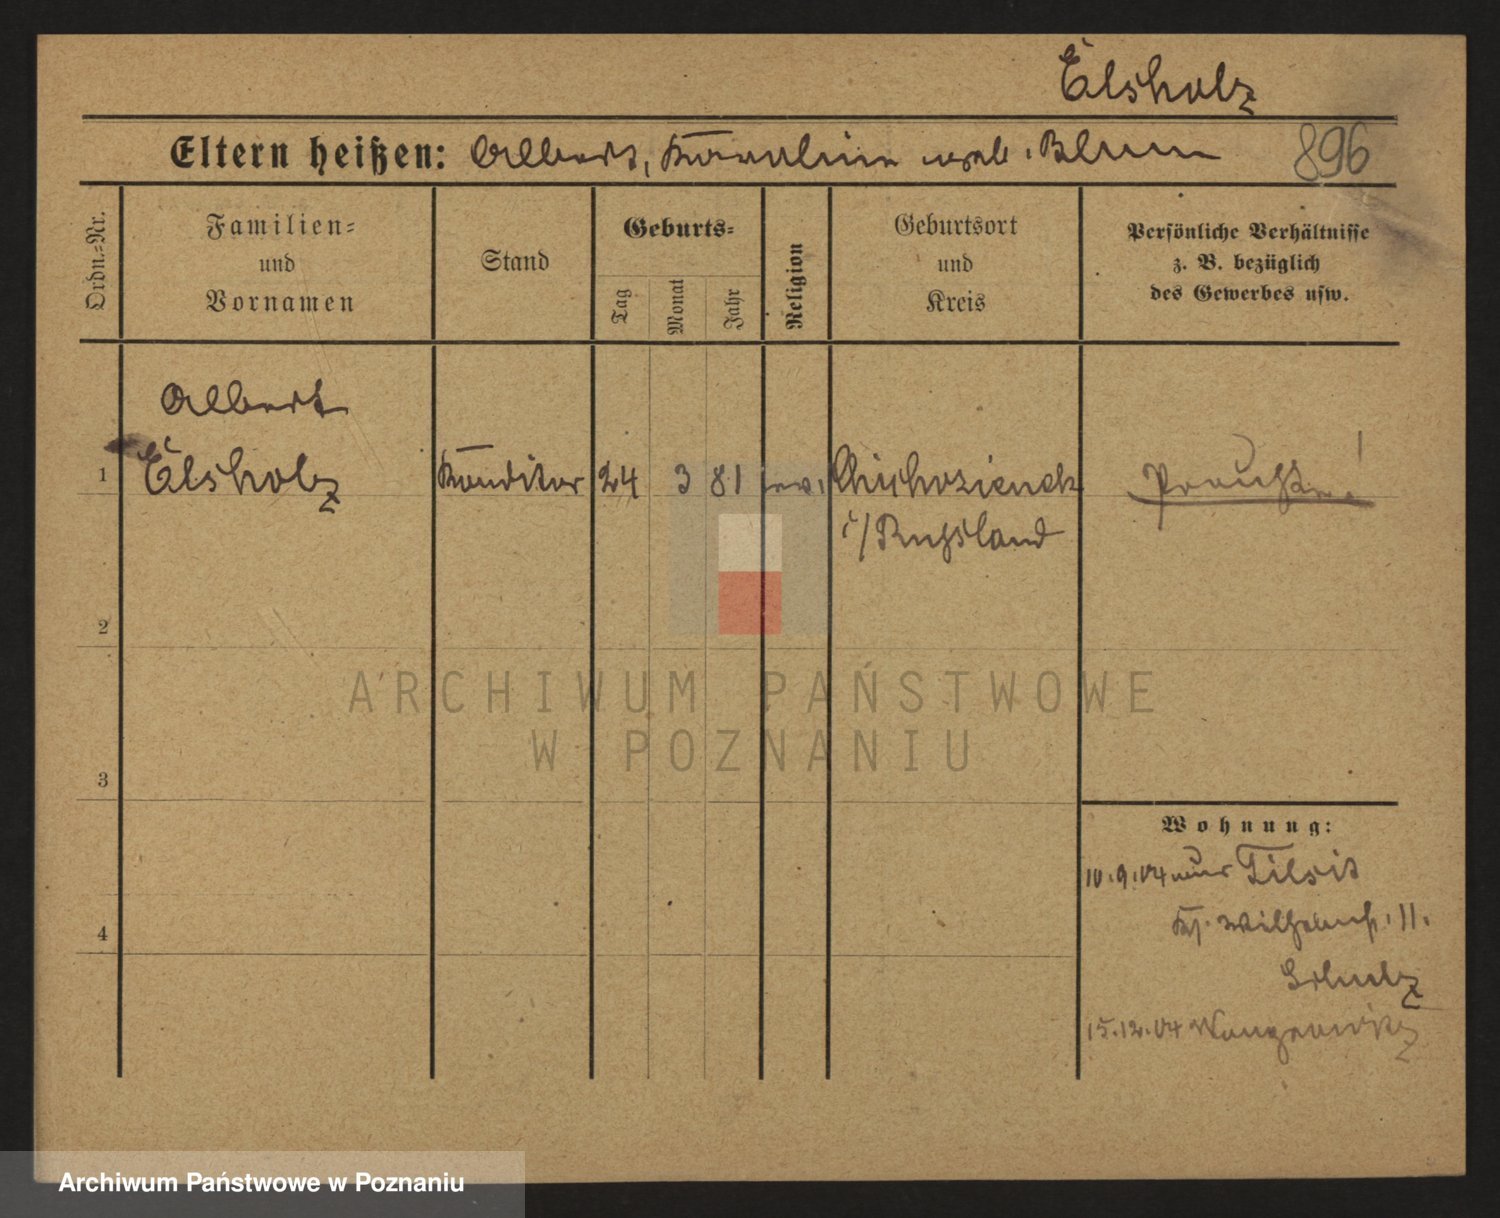 Elsholz
Eltern heißen: Albert, Karoline geb. Blum
896
Ordn.=Nr.
Familien=
und
Vornamen
Stand
Geburts=
Tag
Monat
Jahr
Religion
Geburtsort
und
Kreis
Persönliche Verhältnisse
z. B. bezüglich
des Gewerbes usw.
Albert
1 Elsholz Konditor 24 3 81 ev.
i/Russland
Preuße!
2
3
4
Wohnung:
10.9.04 Tilsit
11.
Schulz
15.12.04 Wongrowitz
ARCHIWUM PAŃSTWOWE
W POZNANIU
Archiwum Państwowe w Poznaniu